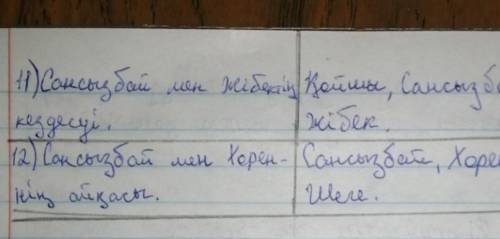 11) Сансызбай мен Жібектің
кездесуі.
Қойшы, Сансызба
Жібек.
12) Сансызбай мен Хорен-
нің айқасы.
Сансызбай, Хорен
Шеге.